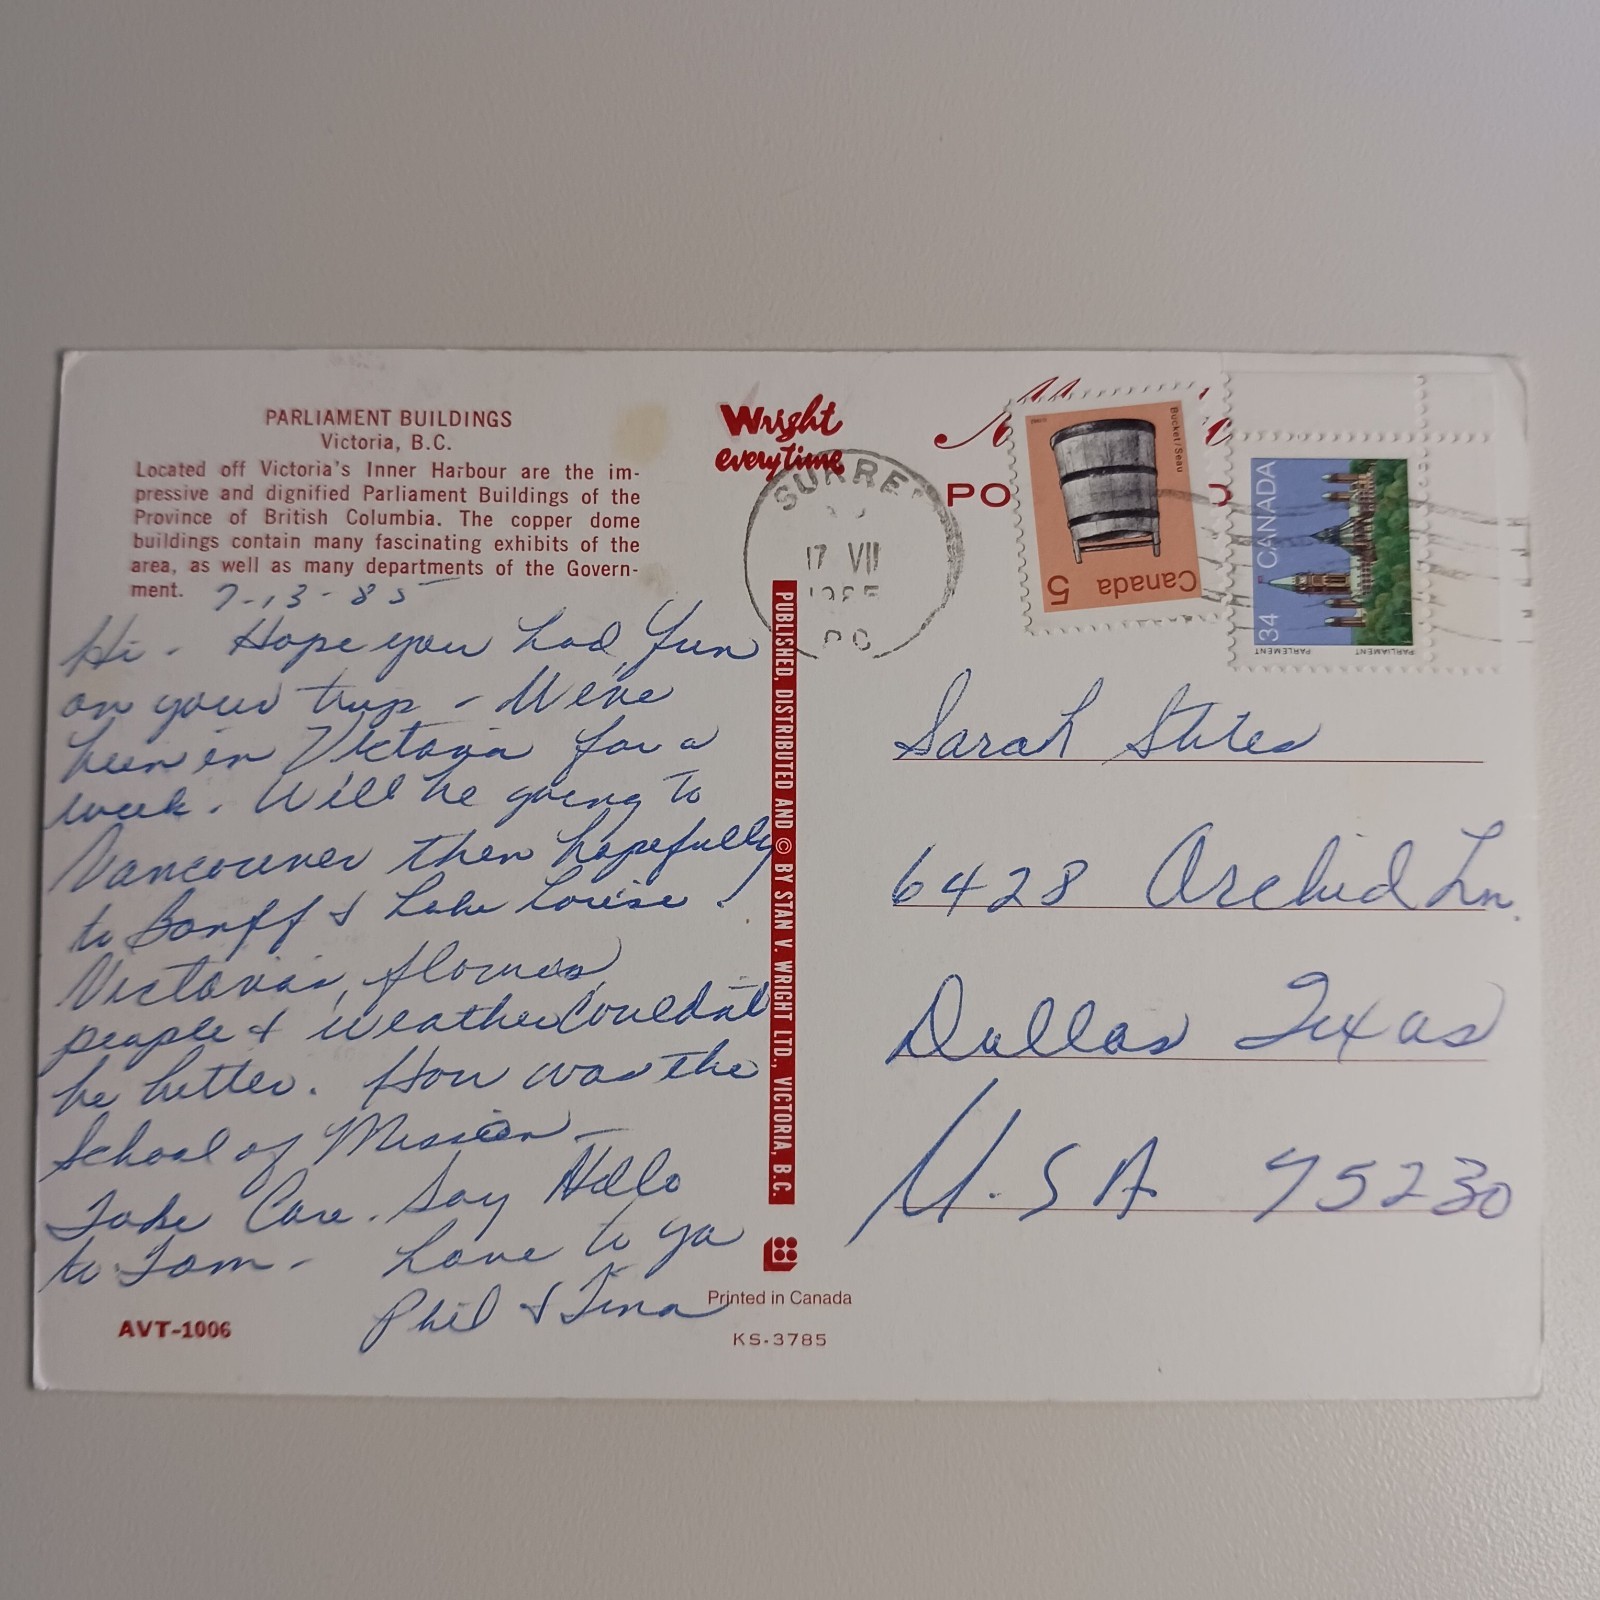 PARLIAMENT BUILDINGS
Victoria, B.C.
Located off Victoria's Inner Harbour are the im-
pressive and dignified Parliament Buildings of the
Province of British Columbia. The copper dome
buildings contain many fascinating exhibits of the
area, as well as many departments of the Govern-
ment.
7-13-85
Hi - Hope you had fun
on your trip - We've
been in Victoria for a
week. Will be going to
Vancouver then hopefully
to Banff & Lake Louise!
Victorias, flowers,
people & weather couldn't
be better. How was the
School of Mission -
Take Care. Say Hello
to Tom - Love to ya
Phil & Tina
AVT-1006
Wright
everytime
PUBLISHED, DISTRIBUTED AND © BY STAN V. WRIGHT LTD., VICTORIA, B.C.
Printed in Canada
KS-3785
SURREY
17 VII
1985
PO
Bucket/Seau
Canada
5
34 CANADA
PARLIAMENT
PARLEMENT
Sarah Stites
6428 Orchid Ln.
Dallas Texas
U.S A 75230